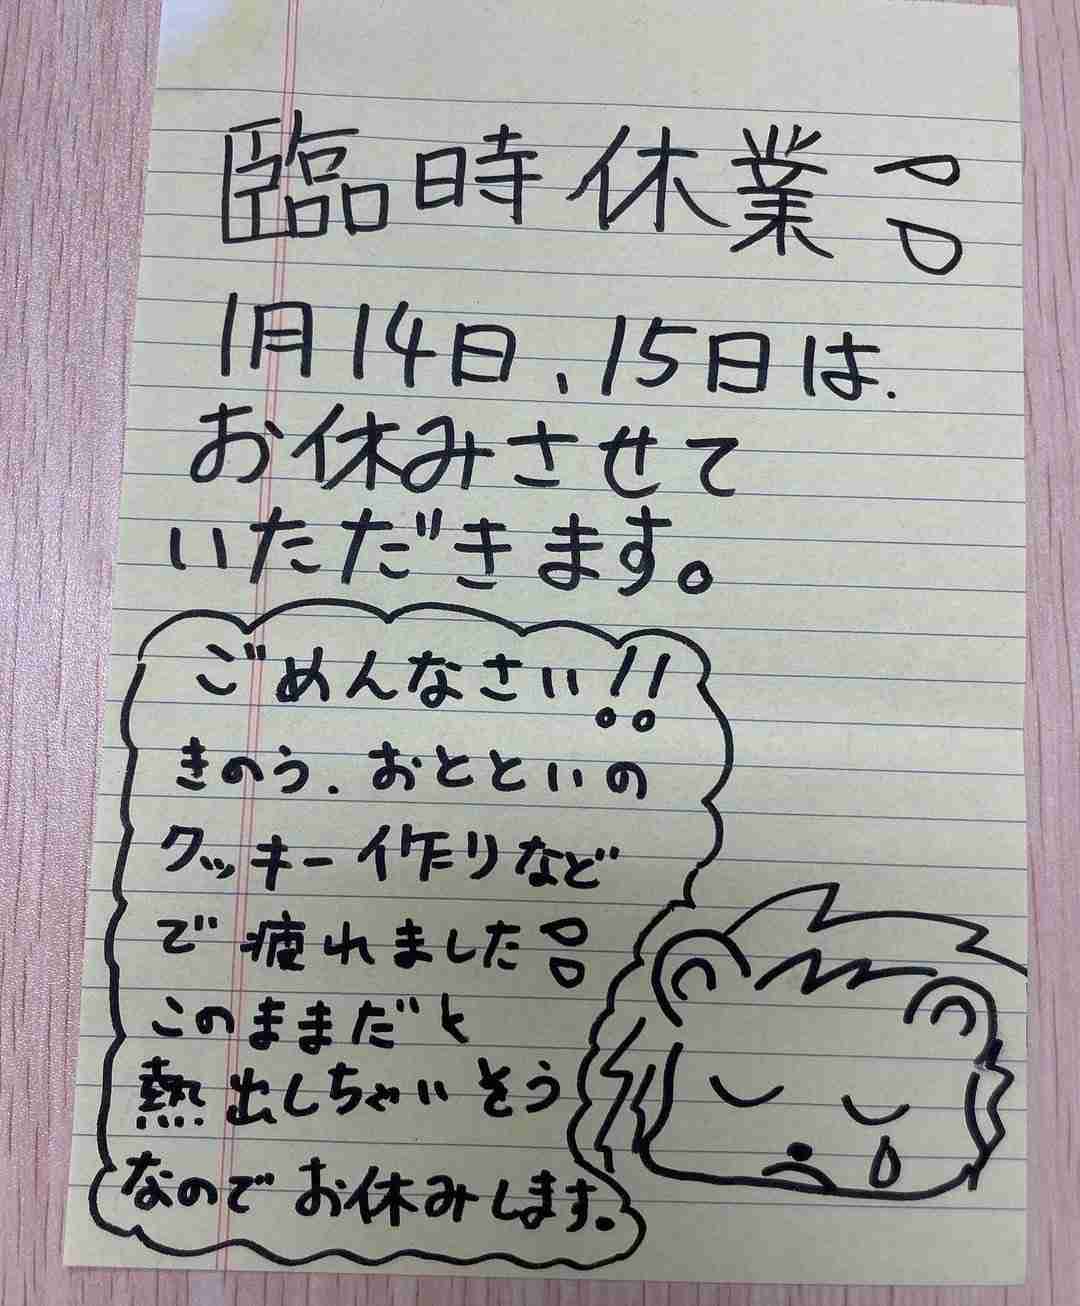 臨時休業
1月14日、15日は、
お休みさせて
いただきます。
ごめんなさい!!
きのう、おとといの
クッキー作りなど
で疲れました
このままだと
熱出しちゃいそう
なのでお休みします。